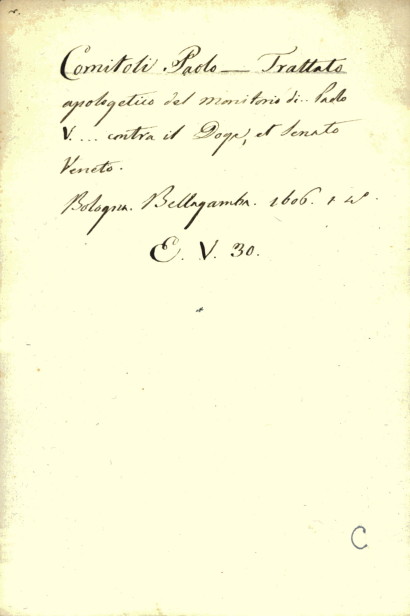 Comitoli Paolo — Trattato
apologetico del monitorio di.. Paolo
V. ... contra il Doge, et Senato
Veneto.
Bologna. Bellagamba. 1606.
E. V. 30.
C